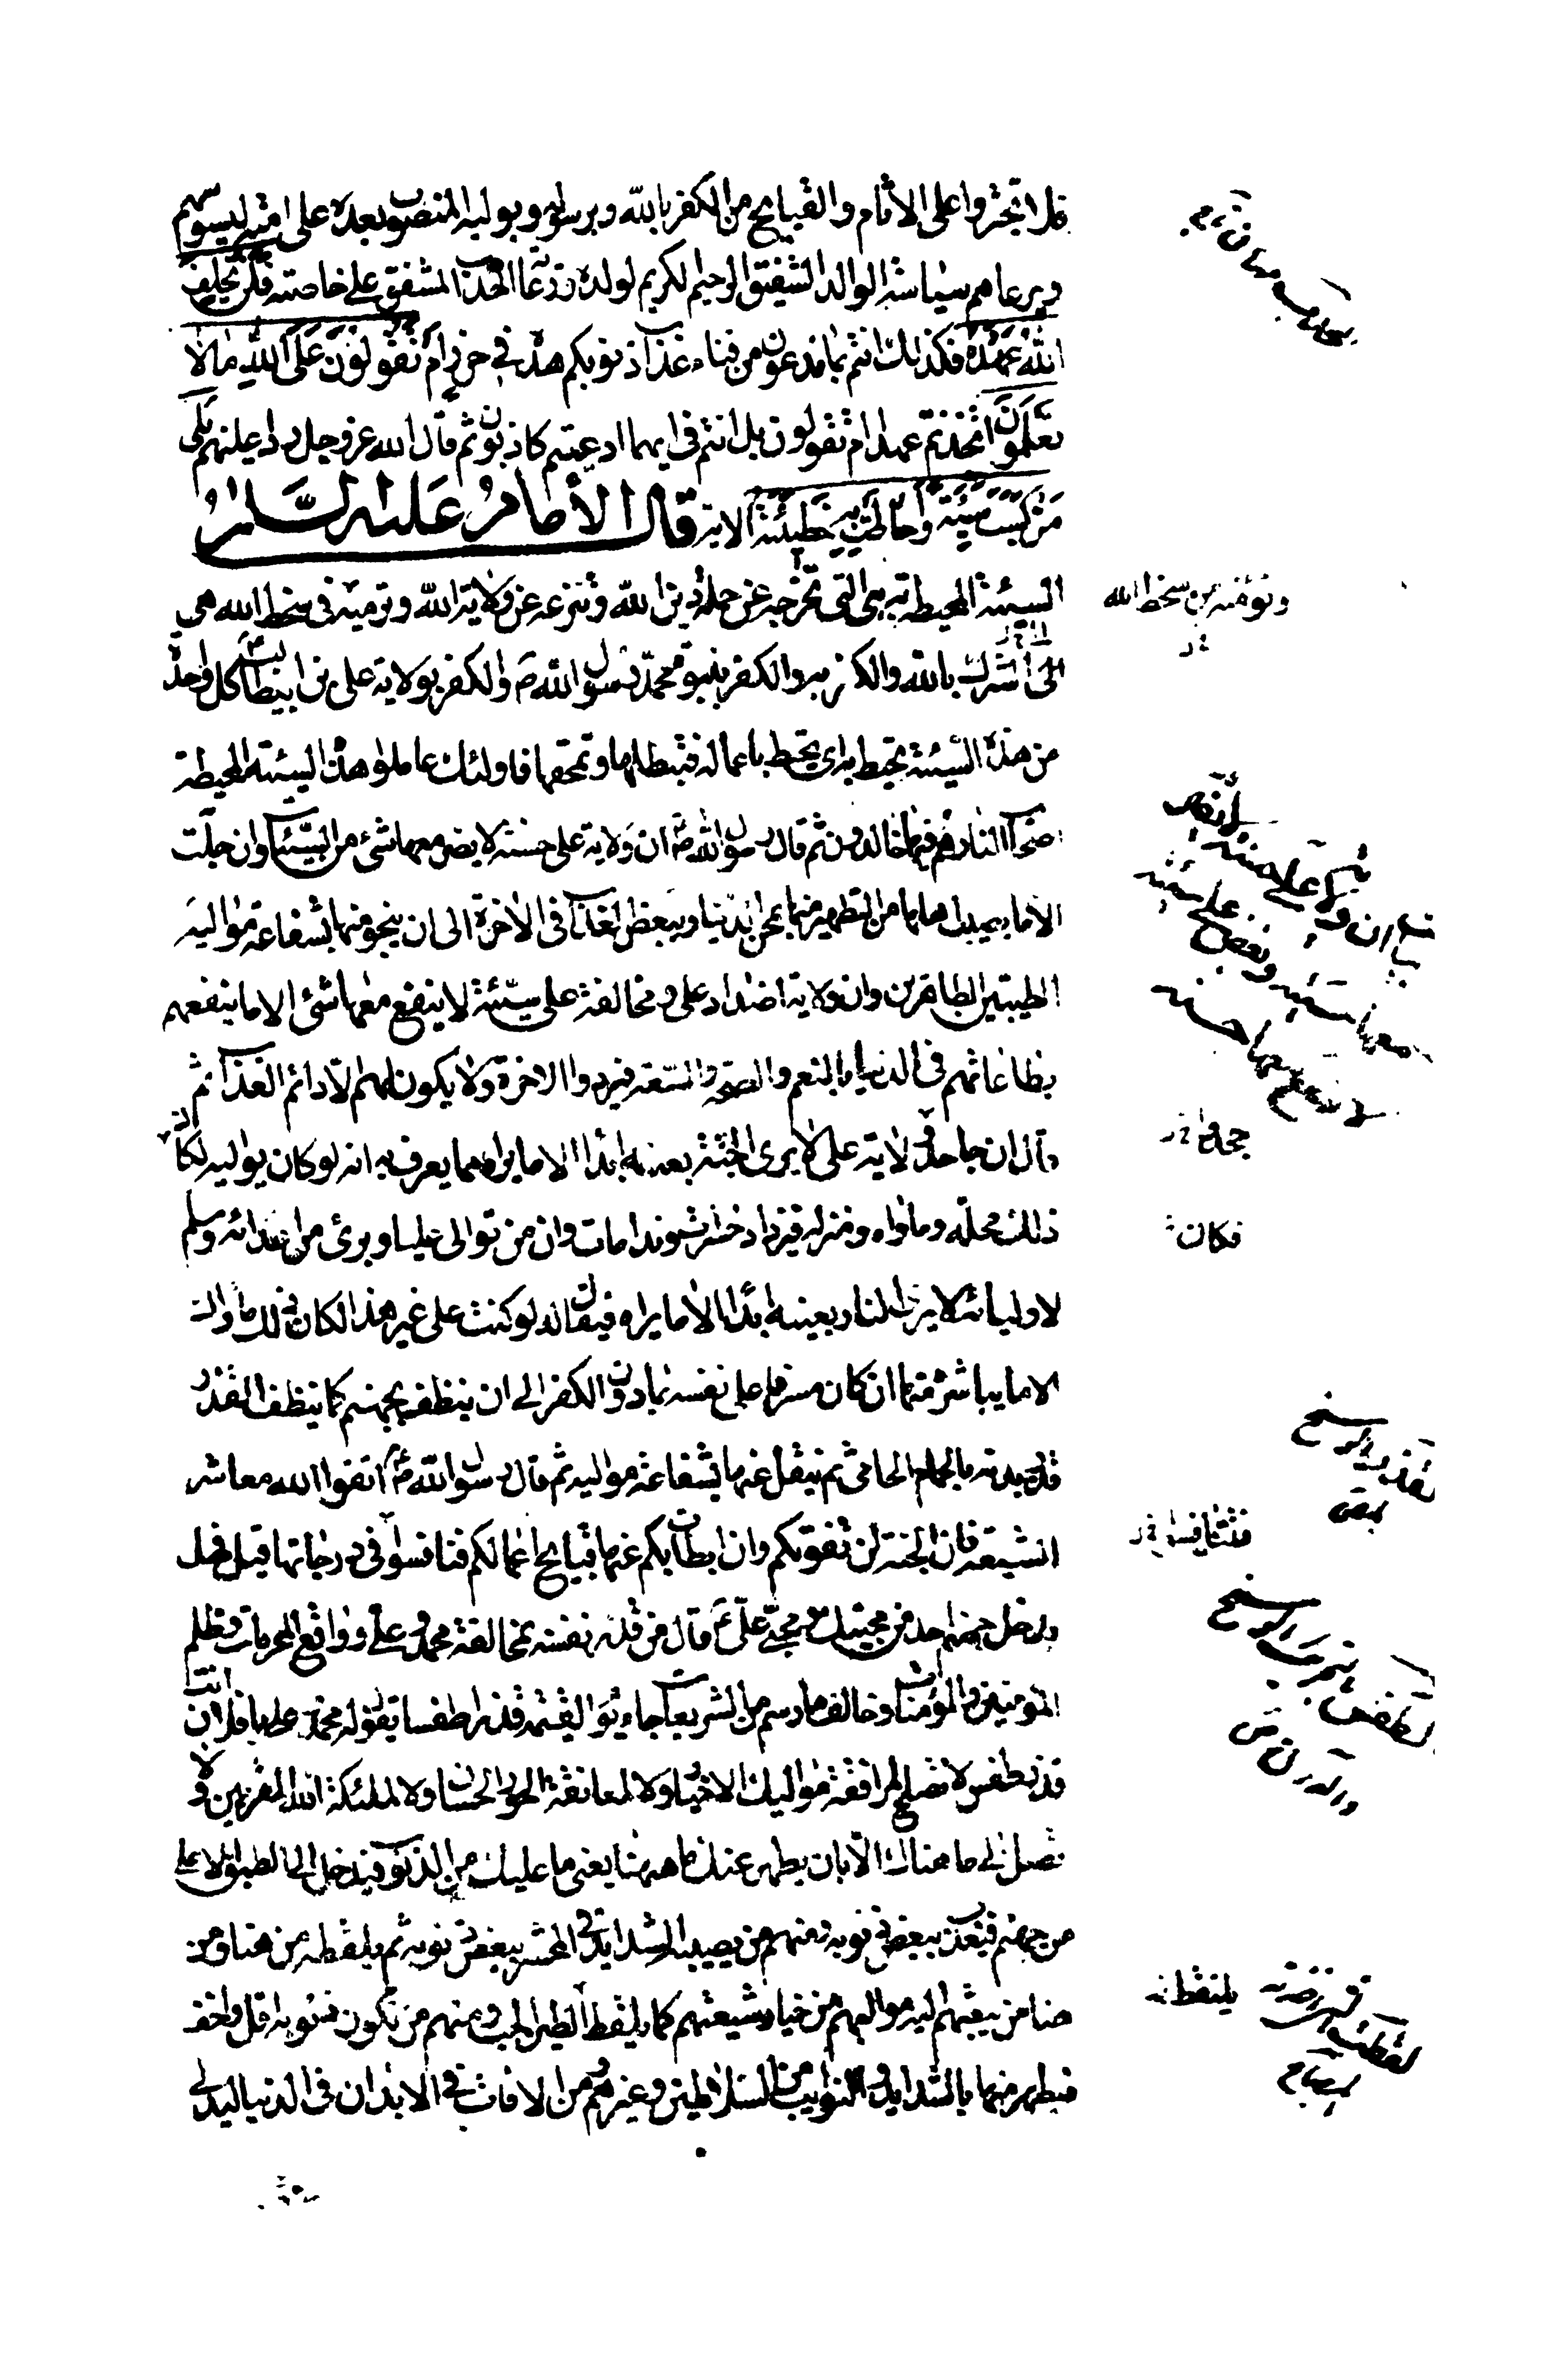 فلا تجتروا على الاثام والقبايح من الكفر بالله وبرسوله وبوليه المنصوب بعده على امته ليسوسهم
ويرعاهم سياسة الوالد الشفيق الرحيم الكريم لولده ورعاية الحدب المشفق على خاصته فلن يخلف
الله عهده فكذلك انتم بما تدعون من فناء عذاب ذنوبكم هذه في حرز ام تقولون على الله ما لا
تعلمون اتخذتم عهدا ام تقولون بل انتم في ايهما ادعيتم كاذبون ثم قال الله عز وجل ردا عليهم بلى
من كسب سيئة واحاطت به خطيئته الاية قال الامام عليه السلام
السيئة المحيطة به هي التي تخرجه عن جملة دين الله وتنزعه عن ولاية الله وترميه في سخط الله هي
الشرك بالله والكفر به والكفر بنبوة محمد رسول الله ص والكفر بولاية علي بن ابيطالب كل واحدة
من هذه السيئة تحيط به اي تحيط باعماله فتبطلها وتمحقها فاولئك عاملوا هذه السيئة المحيطة
اصحاب النار هم فيها خالدون ثم قال رسول الله ص ان ولاية علي حسنة لا يضر معها شئ من السيئات وان جلت
الا ما يصيب اهلها من التطهير منها بمحن الدنيا وببعض العذاب في الاخرة الى ان ينجو منها بشفاعة مواليه
الطيبين الطاهرين وان ولاية اضداد علي ومخالفة علي سيئة لا ينفع معها شئ الا ما ينفعهم
بطاعاتهم في الدنيا بالنعم والصحة والسعة فيردوا الاخرة ولا يكون لهم الا دائم العذاب ثم
قال ان من جحد ولاية علي لا يرى الجنة بعينه ابدا الا ما يراه مما يعرف به انه لو كان يواليه لكان
ذلك محله وماواه ومنزله فيزداد حسرات وندامات وان من توالى عليا وبرئ من اعدائه وسلم
لاوليائه لا يرى النار بعينه ابدا الا ما يراه فيقال له لو كنت على غير هذا لكان ذلك ماواك
الا ما يباشره منها ان كان مسرفا على نفسه بما دون الكفر الى ان ينظف بجهنم كما ينظف القذر
قذر بدنه بالحمام الحامي ثم ينقل عنها بشفاعة مواليه ثم قال رسول الله ص اتقوا الله معاشر
الشيعة فان الجنة لن تفوتكم وان ابطات بكم عنها قبايح اعمالكم فتنافسوا في درجاتها قيل فهل
يدخل جهنم احد من محبيك ومحبي علي ع قال من قذر نفسه بمخالفة محمد وعلي وواقع المحرمات وظلم
المؤمنين والمؤمنات وخالف ما رسم من الشريعات جاء يوم القيمة قذرا طفسا يقول له محمد وعلي يا فلان انت
قذر طفس لا تصلح لمرافقة مواليك الاخيار ولا لمعانقة الحور الحسان ولا لملئكة الله المقربين ولا
تصل الى ما هناك الا بان يطهر عنك ما ههنا يعني ما عليك من الذنوب فيدخل الى الطبق الاعلى
من جهنم فيعذب ببعض ذنوبه ومنهم من يصيبه الشدايد في المحشر ببعض ذنوبه ثم يلقطه من هنا ومن
هنا من يبعثهم اليه مواليهم من خيار شيعتهم كما يلقط الطير الحب ومنهم من تكون ذنوبه اقل واخف
فيطهر منها بالشدايد والنوايب من السلاطين وغيرهم ومن الافات في الابدان في الدنيا ليدلى
وتوقعه من سخط الله
فكان
فتنافسوا
يلتقطه